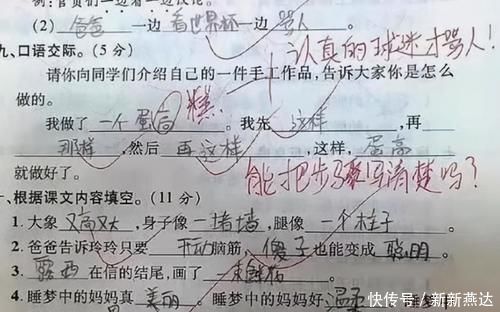 例：官员们一边看一边议论。
(2) 爸爸 一边 看世界杯 一边 骂人
认真的球迷才骂人！
九、口语交际。（5 分）
请你向同学们介绍自己的一件手工作品，告诉大家你是怎么
做的。
糕
我做了 一个蛋高 。我先 这样 ，再
那样 ，然后 再这样 ，这样，蛋高
就做好了。
能把步骤写清楚吗？
、根据课文内容填空。（11 分）
1. 大象 又高又大 ，身子像 一堵墙 ，腿像 一个柱子 。
2. 爸爸告诉玲玲只要 开动 脑筋， 傻子 也能变成 聪明 。
3. 露西 在信的结尾，画了 一束鲜花
4. 睡梦中的妈妈真 美丽 。睡梦中的妈妈好 温柔
快传号/新新燕达